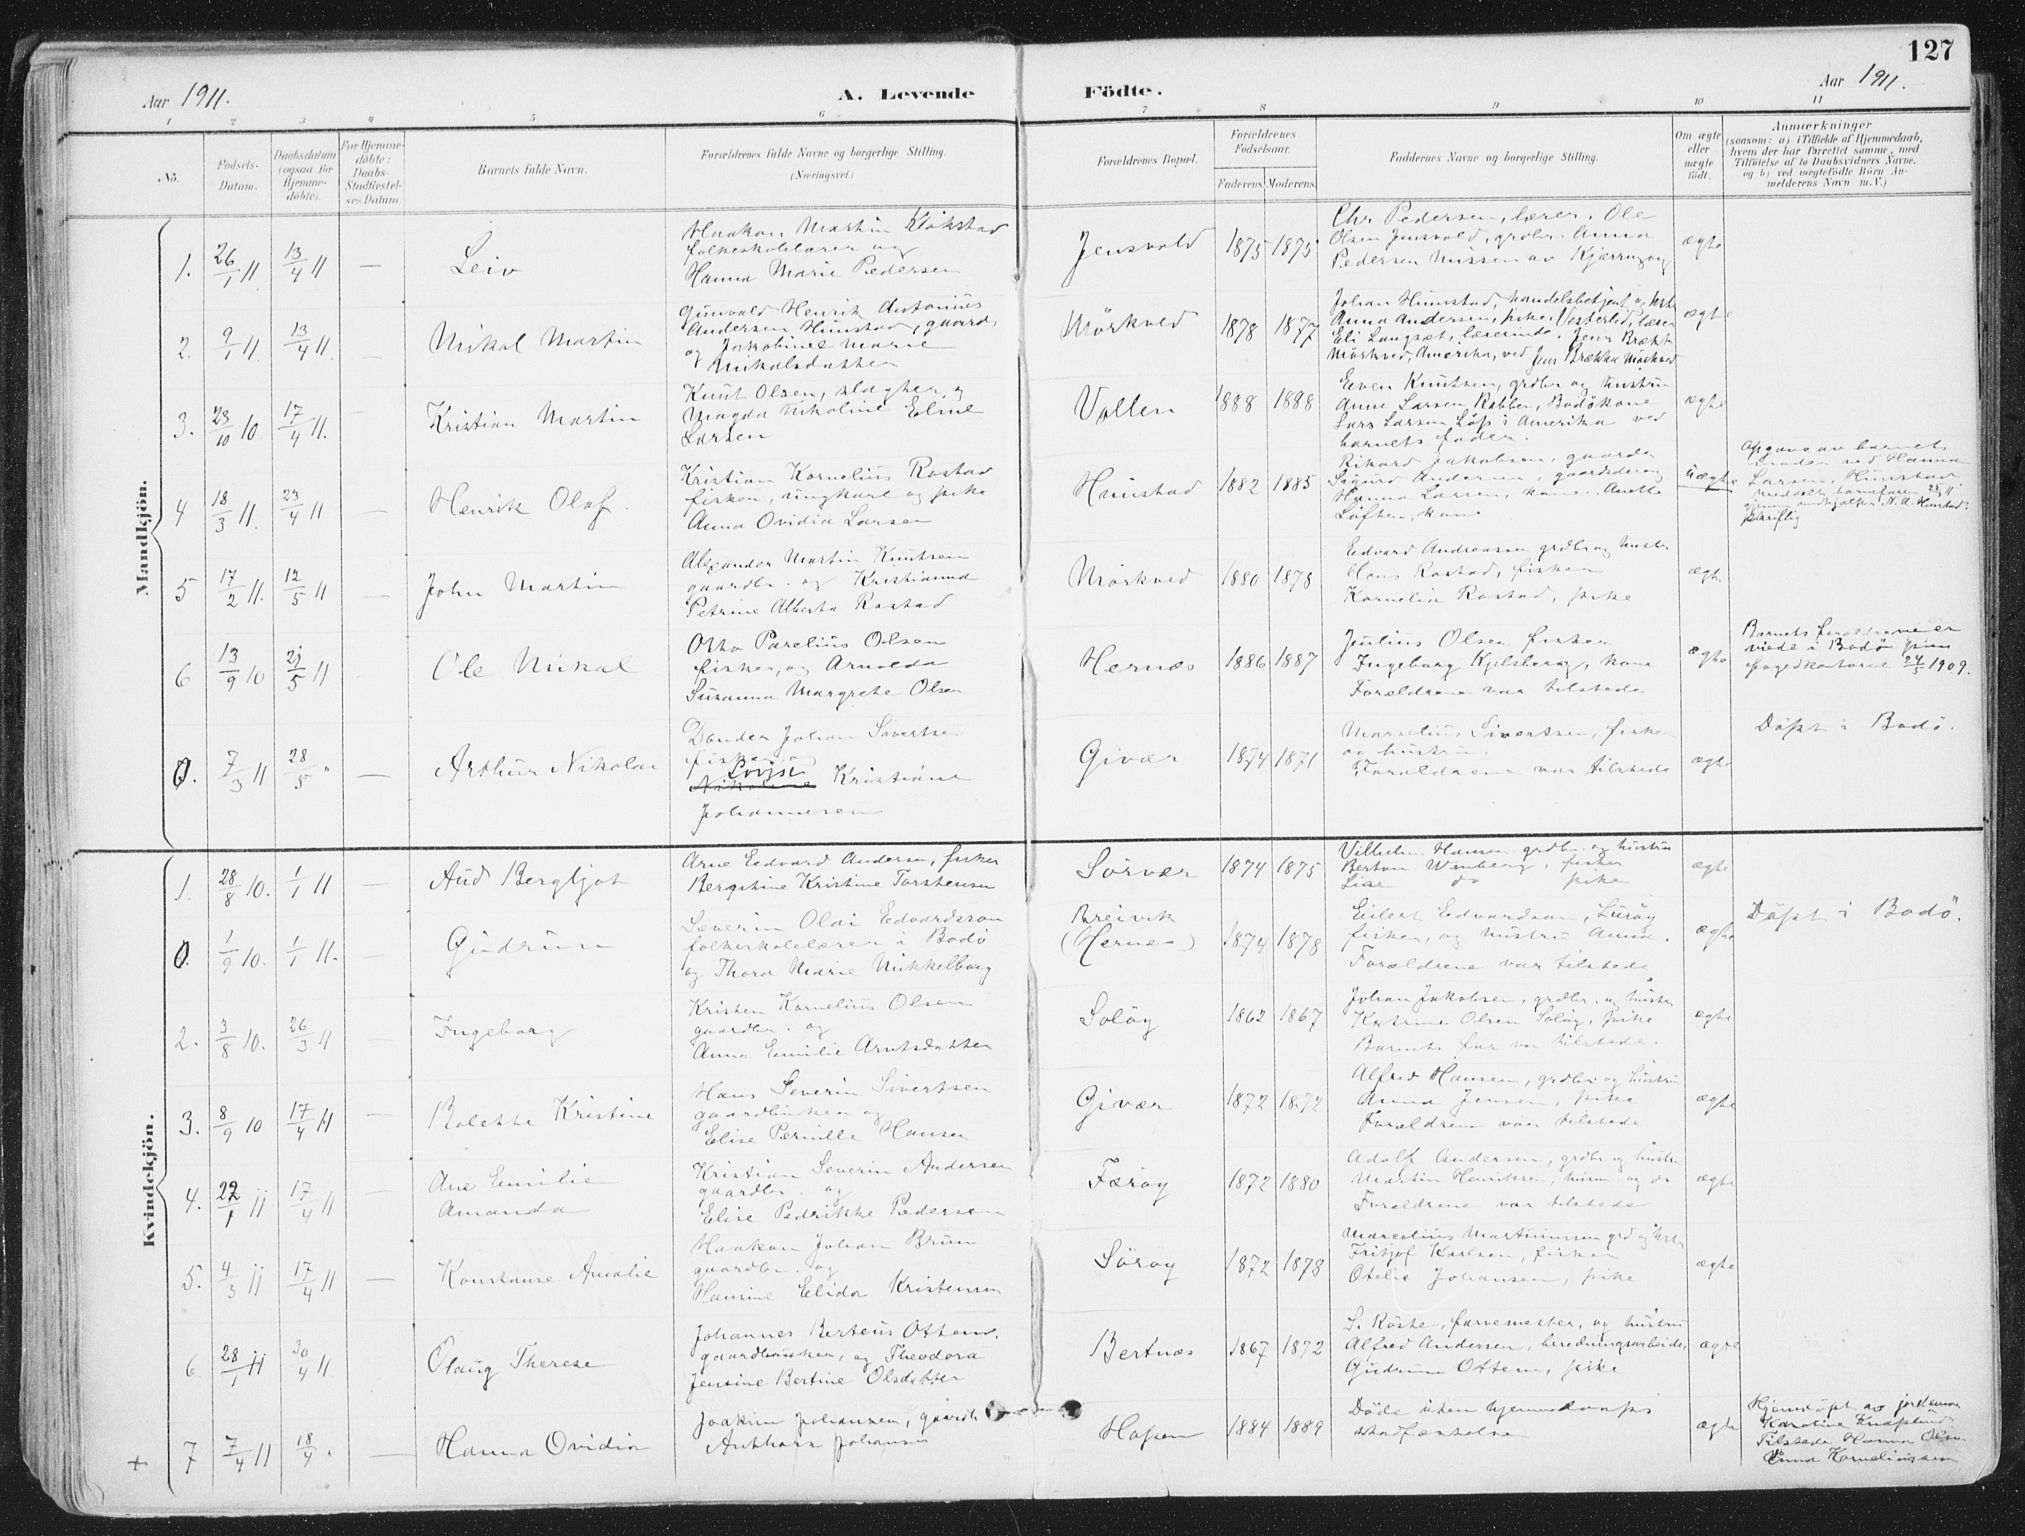 127
Aar 1911.
A. Levende Födte.
Aar 1911.
1 2 3 4 5 6 7 8 9 10 11
No.
Födsels-Datum.
Daabsdatum (ogsaa for Hjemme-döbte).
For Hjemme-döbte: Daabs-Stadfæstel-ses Datum.
Barnets fulde Navn.
Forældrenes fulde Navne og borgerlige Stilling.
(Næringsvei.)
Forældrenes Bopæl.
Forældrenes Födselsaar.
Faderens. Moderens.
Faddernes Navne og borgerlige Stilling.
Om ægte eller uægte födt.
Anmærkninger
(saasom: a) i Tilfælde af Hjemmedaab, hvem der har forrettet samme, med Tilföielse af to Daabsvidners Navne, og b) ved uægtefödte Börn An-melderens Navn m. V.)
Mandkjön.
1. 26/1 11 13/4 11 — Leiv
Haakon Martin Klokstad
folkeskolelærer og
Hanna Marie Pedersen
Jensvold 1875 1875
Chr Pedersen, lærer. Ole
Olsen Jensvold, grdbr. Anna
Pedersen Nissen av Kjærringøy
ægte
2. 9/1 11. 13/4 11. — Nikal Martin
Gunvald Henrik Antonius
Andersen Hunstad, gaardb.
og Jakobine Marie
Nikalsdatter
Mörkved 1878 1877
Johan Hunstad, handelsbetjent og hst
Anna Andersen, pike, Vesterlid, lærer
Eli Langset, lærerinde. Jens Brækk
Mörkved, Amerika, ved Jens Brækka Mörkved
ægte
3. 23/10 10. 17/4 11. — Kristian Martin
Knut Olsen, slagter, og
Magda Nikoline Eline
Larsen
Vollen 1888 1888
Even Knutsen, grdbr og hustru
Anne Larsen Robber, Bodökone
Lars Larsen Löp i Amerika ved
barnets fader.
ægte
4 18/3 11. 23/4 11 — Henrik Olaf.
Kristian Kornelius Rostad
fisker, ungkarl og pike
Anna Ovidia Larsen
Hunstad 1882 1885
Rikard Jakobsen, gaardbr
Sigurd Andersen, gaardbr og
Hanna Larsen, kone. Anette
Löften, kone
uægte
Opgave av barnets
Larsen, Hunstad
skriftlig
5 17/2 11. 12/5 11 — John Martin
Alexander Martin Knutsen
gaardbr. og Kristianna
Petrine Alberta Rostad
Mörkved 1880 1878
Edvard Andreassen grdbr og hustru
Hans Rostad, fisker
Kornelia Rostad, pike
ægte
6 13/9 10 21/5 11 Ole Nikal
Otto Parelius Olsen
fisker, og Arnolda
Susanna Margrete Olsen
Hernæs 1886 1887
Julius Olsen fisker
Ingeborg Kjelsberg, kone
Forældrene var tilstede
ægte
Barnets forældrene er
viede i Bodö paa
fogedkontoret 24/5 1909.
0. 7/3 11 28/5 " — Arthur Nikolai
Dander Johan Sivertsen
fisker og
Lovise
Nikoline Kristiane
Johannesen
Givær 1874 1871
Marselius Sivertsen, fisker
og hustru.
Forældrene var tilstede
ægte
Döpt i Bodö.
Kvindekjön.
1. 28/8 10. 1/1 11 — Aud Bergljot
Arne Edvard Andersen, fisker
Bergitine Kristine Torstensen
Sörvær 1874 1875
Vilhelm Hansen grdbr. og hustru
Berton Wenberg, fisker
Lise do pike
ægte
0. 1/9 10. 1/1 11. — Gudrun
Severin Olai Edvardsson
folkeskolelærer i Bodö
og Thora Marie Mikkelborg
Breivik
(Hernes) 1874 1878
Eilert Edvardson, Luröy
fisker, og hustru Anna.
Forældrene var tilstede
ægte
Döpt i Bodö.
2. 3/8 10. 26/3 11 — Ingeborg
Kristen Kornelius Olsen
gaardbr. og
Anna Emilie Arntsdatter
Solöy 1862 1867
Johan Jakobsen, grdbr. og hustru
Katrine Olsen Solöy, pike
Barnets far var tilstede.
ægte
3. 8/9 10 17/4 11 — Bolette Kristine
Hans Severin Sivertsen
gaardbruker og
Elise Pernille Hansen
Givær 1872 1872
Alfred Hansen, grdbr. og hustru
Anna Jensen, pike
Forældrene var tilstede
ægte
4. 22/1 11 17/4 11 — Ane Emilie
Amanda
Kristian Severin Andersen
gaardbr. og
Elise Pedrikke Pedersen
Færöy 1872 1880
Adolf Andersen, grdbr og hustru
Martin Henriksen, husm. og do
Forældrene var tilstede
ægte
5. 4/3 11 17/4 11 — Konstanse Amalie
Haakon Johan Brun
gaardbr. og
Hansine Elida Kristensen
Söröy 1872 1878
Marcelius Martinussen grd og hstr
Fritjof Karlsen, fisker
Otelie Johansen, pike
ægte
6 28/1 11 30/4 11 Olaug Therese
Johannes Berteus Ottem.
gaardbruker, og Theodora
Jensine Bertine Olsdatter
Bertnæs 1867 1872
S. Röste, farvemester, og hustru
Alfred Andersen, beredningsarbeider
Gudrun Ottem, pike
ægte
+ 7 7/4 11 18/4 " — Hanna Ovidia
Joakim Johansen, gaardb
Anthora Johansen
Hopen 1884 1889
Döde uden hjemmedaaps
stadfæstelse
ægte
Hjemdöpt av jordemor
Karoline Knaplund
Tilstede Hanna Olsen
Anna Korneliussen